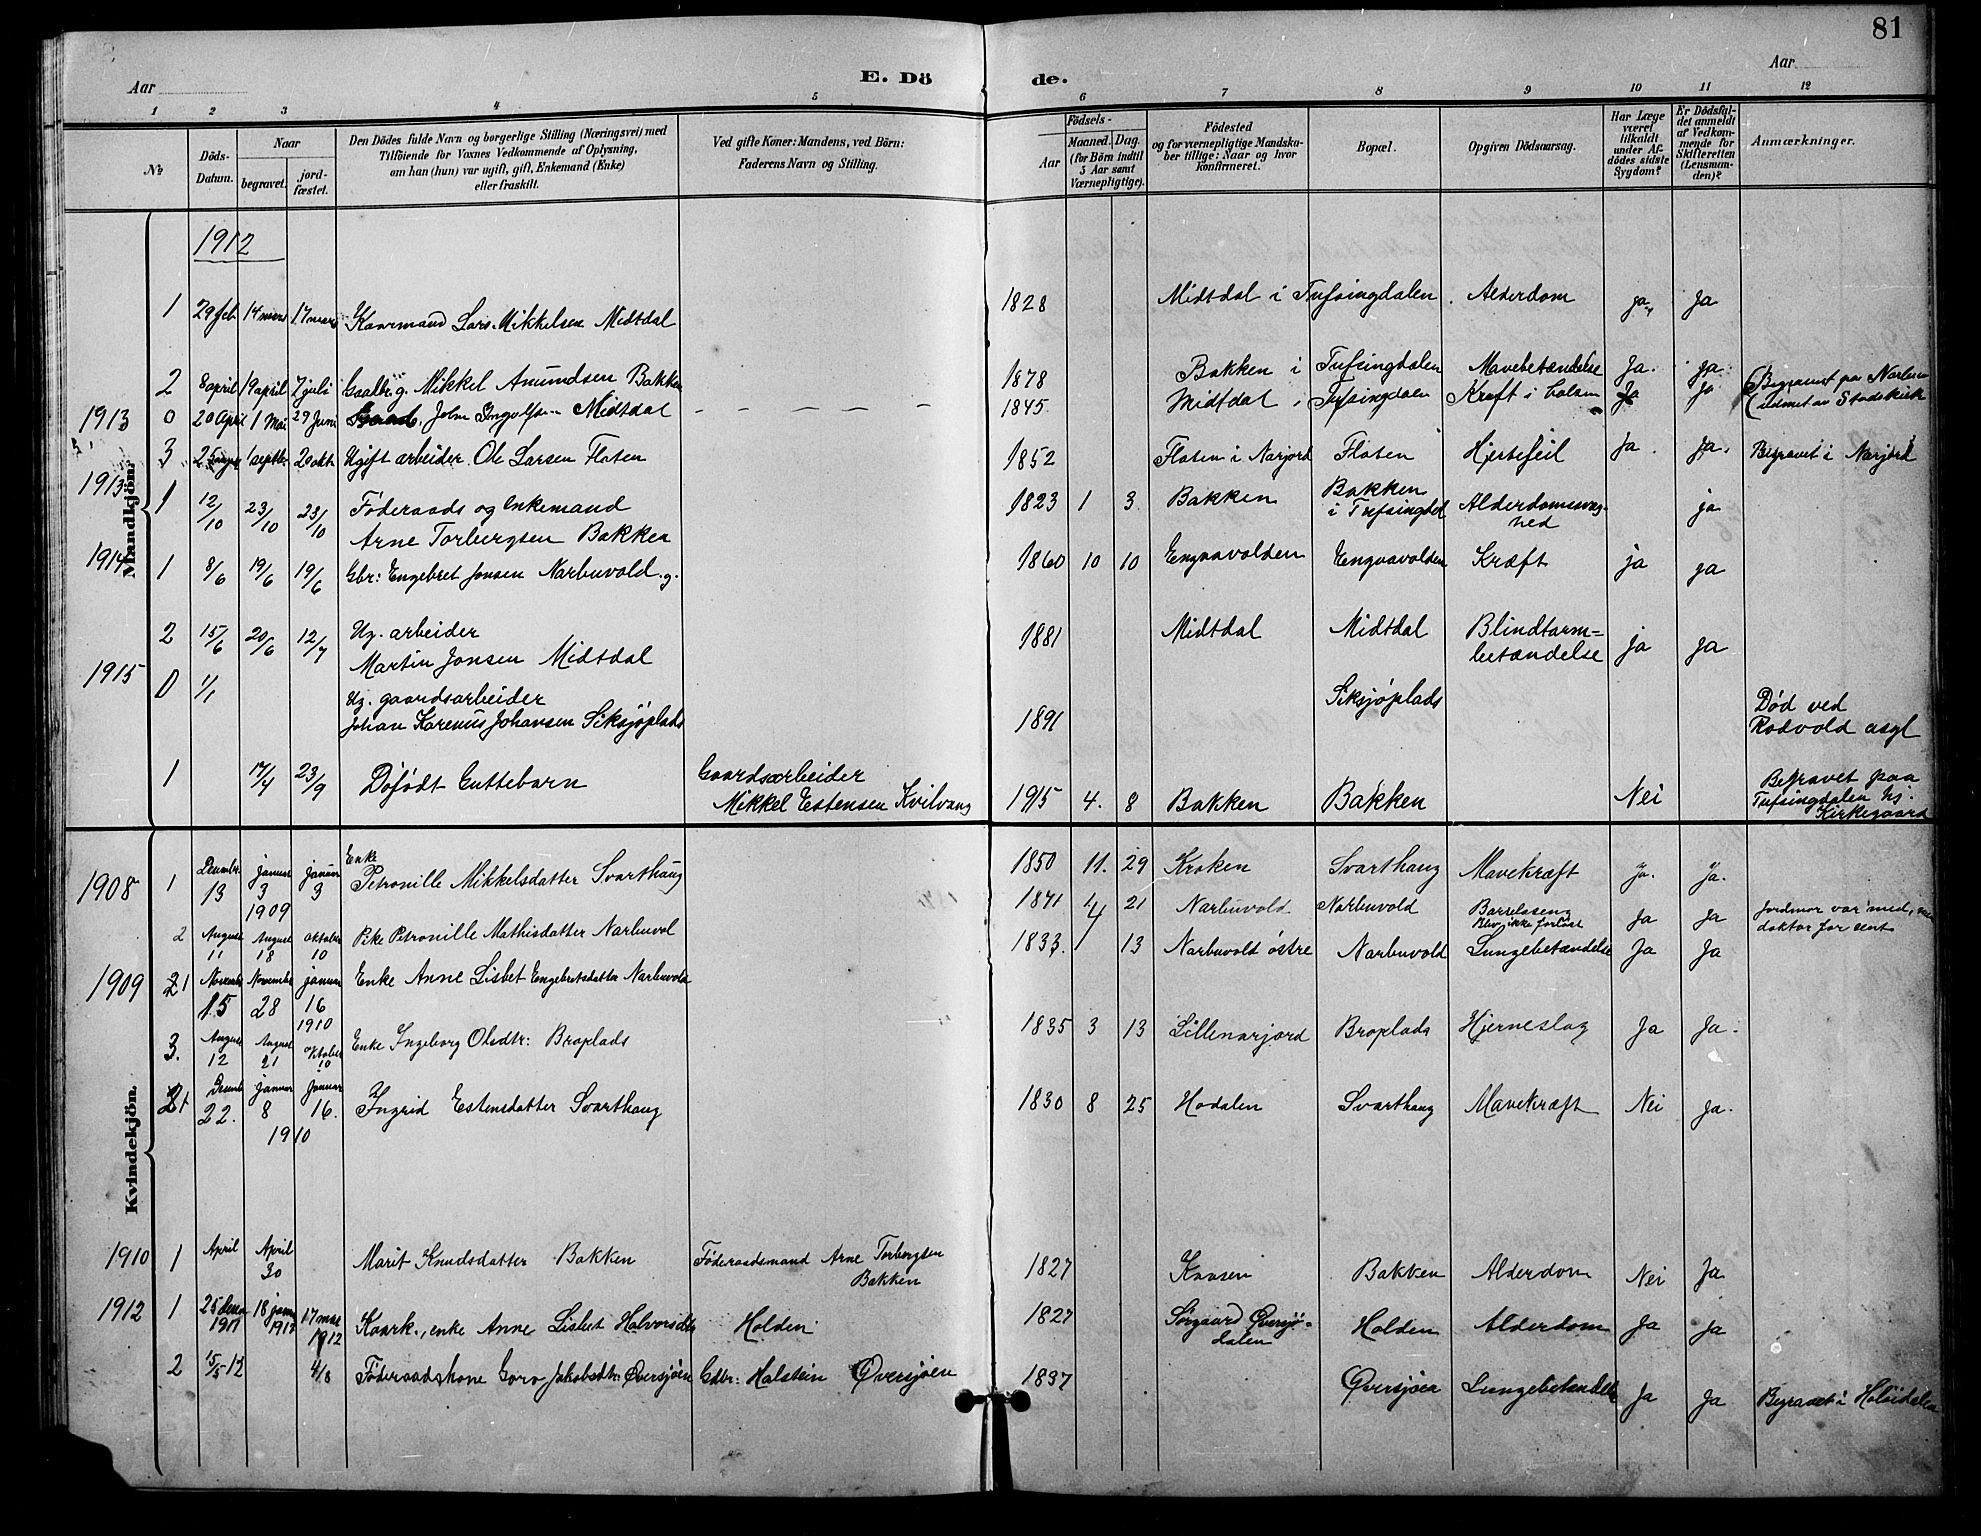 81
Aar
E. Dö
de.
Aar
1 2 3 4 5 6 7 8 9 10 11 12
No
Döds-Datum.
Naar
begravet.
jordfæstet.
Den Dödes fulde Navn og borgerlige Stilling (Næringsvei) med
Tilföiende for Voxnes Vedkommende af Oplysning,
om han (hun) var ugift, gift, Enkemand (Enke)
eller fraskilt.
Ved gifte Koner: Mandens, ved Börn:
Faderens Navn og Stilling.
Födsels-
Aar
Maaned. Dag.
(for Börn indtil
5 Aar samt
Værnepligtige).
Födested
og for værnepligtige Mandska-
ber tillige: Naar og hvor
konfirmeret.
Bopæl.
Opgiven Dödsaarsag.
Har Læge
været
tilkaldt
under Af-
dödes sidste
Sygdom?
Er Dödsfal-
det anmeldt
af Vedkom-
mende for
Skifteretten
(Lensman-
den)?
Anmærkninger.
Mandkjön.
1912
1 29 feb 14 mars 17 mars Kaarmand Lars Mikkelsen Midtdal 1828 Midtdal i Tufsingdalen. Alderdom ja Ja
2 8 april 19 april 7 juli Gaalbr. g. Mikkel Amundsen Bakken 1878 Bakken i Tufsingdalen Mavebetændelse Ja. ja.
1913 0 20 April 1 Mai 29 Juni John Ingolfsen Midtdal — — — — 1845 Midtdal i Tufsingdalen Kræft i Ja ja (Begravet paa
3 1 septbr 20 okt Ugift arbeider Ole Larsen Floten 1852 Floten i Narjord Floten Hjertefeil Ja. Ja. Begravet i Narjord
1913 1 12/10 23/10 23/10 Föderaads og enkemand
Arne Torbergsen Bakken 1823 1 3 Bakken Bakken
i Tufsingdal Alderdomssvag-
hed ja
1914 1 8/6 19/6 19/6 Gbr: Engebret Jonsen Narbuvold. g. 1860 10 10 Engvavolden Engvavolden Kræft ja ja
2 15/6 20/6 12/7 Ug. arbeider
Martin Jonsen Midtdal 1881 Midtdal Midtdal Blindtarm=
betændelse ja ja
1915 0 1/1 Ug. gaardsarbeider
Johan Karenus Johansen Siksjøplads 1891 Siksjøplads Død ved
Rødvold asyl
1 17/4 23/9 Döfödt Guttebarn Gaardsarbeider
Mikkel Estensen Kvilvang 1915 4. 8 Bakken Bakken Nei Begravet paa
Tufsingdalen
Kirkegaard
Kvindekjön.
1908 1 Decembr. 13 januar 3 1909 januar 3 Enke
Petronille Mikkelsdatter Svarthaug 1850 11. 29 Kroken Svarthaug Mavekræft Ja. Ja.
2 August 11 August 18 oktober 10 Pike Petronille Mathisdatter Narbuvol 1871 4 21 Narbuvold Narbuvold Barselseng
Blev ikke forløst Ja Ja Jordmor var med,
doktor for sent
1909 1 November 15 November 28 januar 16 1910 Enke Anne Lisbet Engebretsdatter Narbuvold 1833. 1 13 Narbuvold østre Narbuvold Lungebetændelse Ja Ja
3. August 12 August 21 oktober 10 Enke Ingeborg Olsdtr: Broplads 1835 3 13 Lillenarjord Broplads Hjerneslag Ja Ja.
Decemb 22. januar 8 1910 januar 16. Ingrid Estensdatter Svarthaug 1830 8 25 Hodalen Svarthaug Mavekræft Nei Ja.
1910 1 April April 30 Marit Knudsdatter Bakken Föderaadsmand Arne Torbergsen
Bakken 1827 Kaasen Bakken Alderdom Nei Ja
1912 1 25 decbr 1911 18 janu 1912 17 mars 1912 Kaark., enke Anne Lisbet Halvorsdtr Holden 1827 Sørgaard Øversjö-
dalen Holden Alderdom Ja Ja
2 15/5 12 4/8 Föderaadskone Goro Jakobsdtr Øversjøen Gdbr: Halstein Øversjøen 1837 Øversjøen Lungebetændelse Ja Ja Begravet i Holöidalen